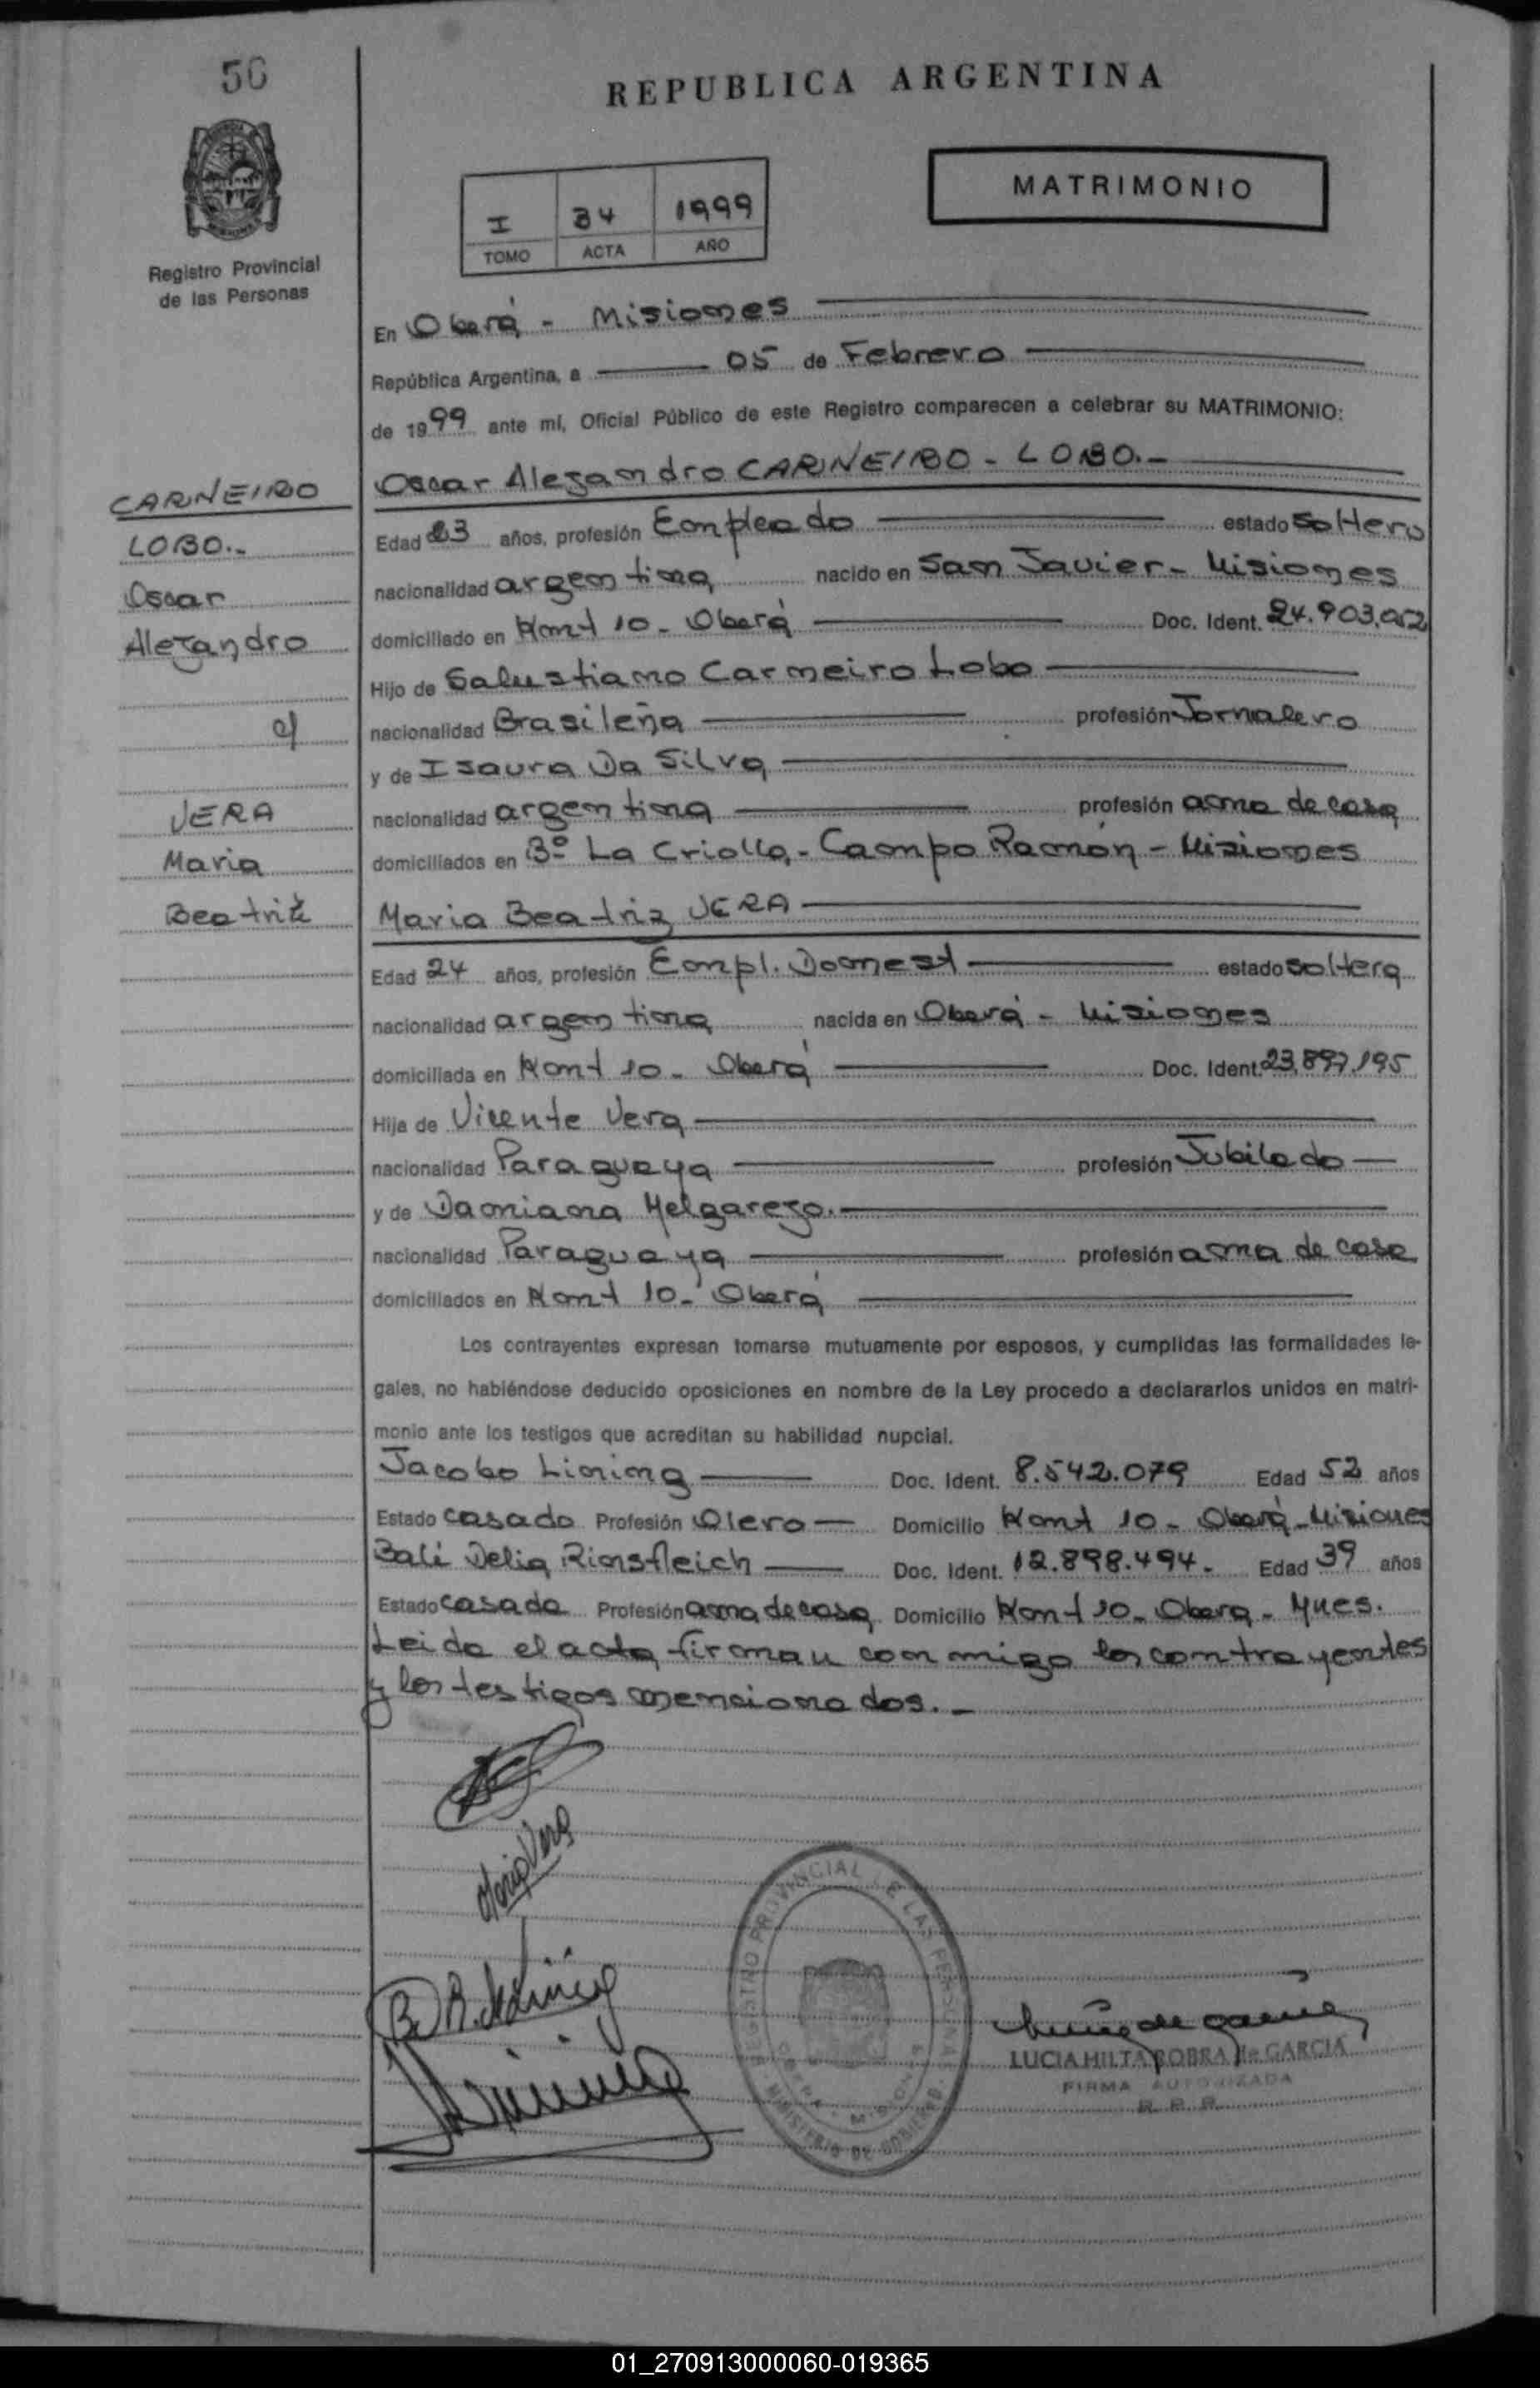 56
REPUBLICA ARGENTINA
MATRIMONIO
I 34 1999
TOMO ACTA AÑO
Registro Provincial
de las Personas
En Oberá - Misiones
República Argentina, a 05 de Febrero
de 1999 ante mí, Oficial Público de este Registro comparecen a celebrar su MATRIMONIO:
Oscar Alejandro CARNEIRO - LOBO.-
CARNEIRO
LOBO.-
Oscar
Alejandro
c/
VERA
Maria
Beatriz
Edad 23 años, profesión Empleado estado soltero
nacionalidad argentina nacido en San Javier - Misiones
domiciliado en Km 10 - Oberá Doc. Ident. 24.903.052
Hijo de Salustiano Carneiro Lobo
nacionalidad Brasileña profesión Jornalero
y de Isaura Da Silva
nacionalidad argentina profesión ama de casa
domiciliados en Bº La Criolla - Campo Ramón - Misiones
Maria Beatriz VERA
Edad 24 años, profesión Empl. Domest estado soltera
nacionalidad argentina nacida en Oberá - Misiones
domiciliada en 10 - Oberá Doc. Ident. 23.897.195
Hija de Vicente Vera
nacionalidad Paraguaya profesión Jubilado
y de Damiana Melgarejo.
nacionalidad Paraguaya profesión ama de casa
domiciliados en 10 - Oberá
Los contrayentes expresan tomarse mutuamente por esposos, y cumplidas las formalidades le-
gales, no habiéndose deducido oposiciones en nombre de la Ley procedo a declararlos unidos en matri-
monio ante los testigos que acreditan su habilidad nupcial.
Jacobo Liming Doc. Ident. 8.542.079 Edad 52 años
Estado casado Profesión Olero Domicilio 10 - Oberá - Misiones
Bali Delia Rinsfleich Doc. Ident. 12.898.494. Edad 39 años
Estado casada Profesión ama de casa Domicilio 10 - Oberá - Mnes.
Leida el acta, firman conmigo los contrayentes
y los testigos mencionados.-
Maria Vera
REGISTRO PROVINCIAL DE LAS PERSONAS
MINISTERIO DE GOBIERNO
LUCIA HILTA ROBRA de GARCIA
FIRMA AUTORIZADA
R. P. P.
01_270913000060-019365